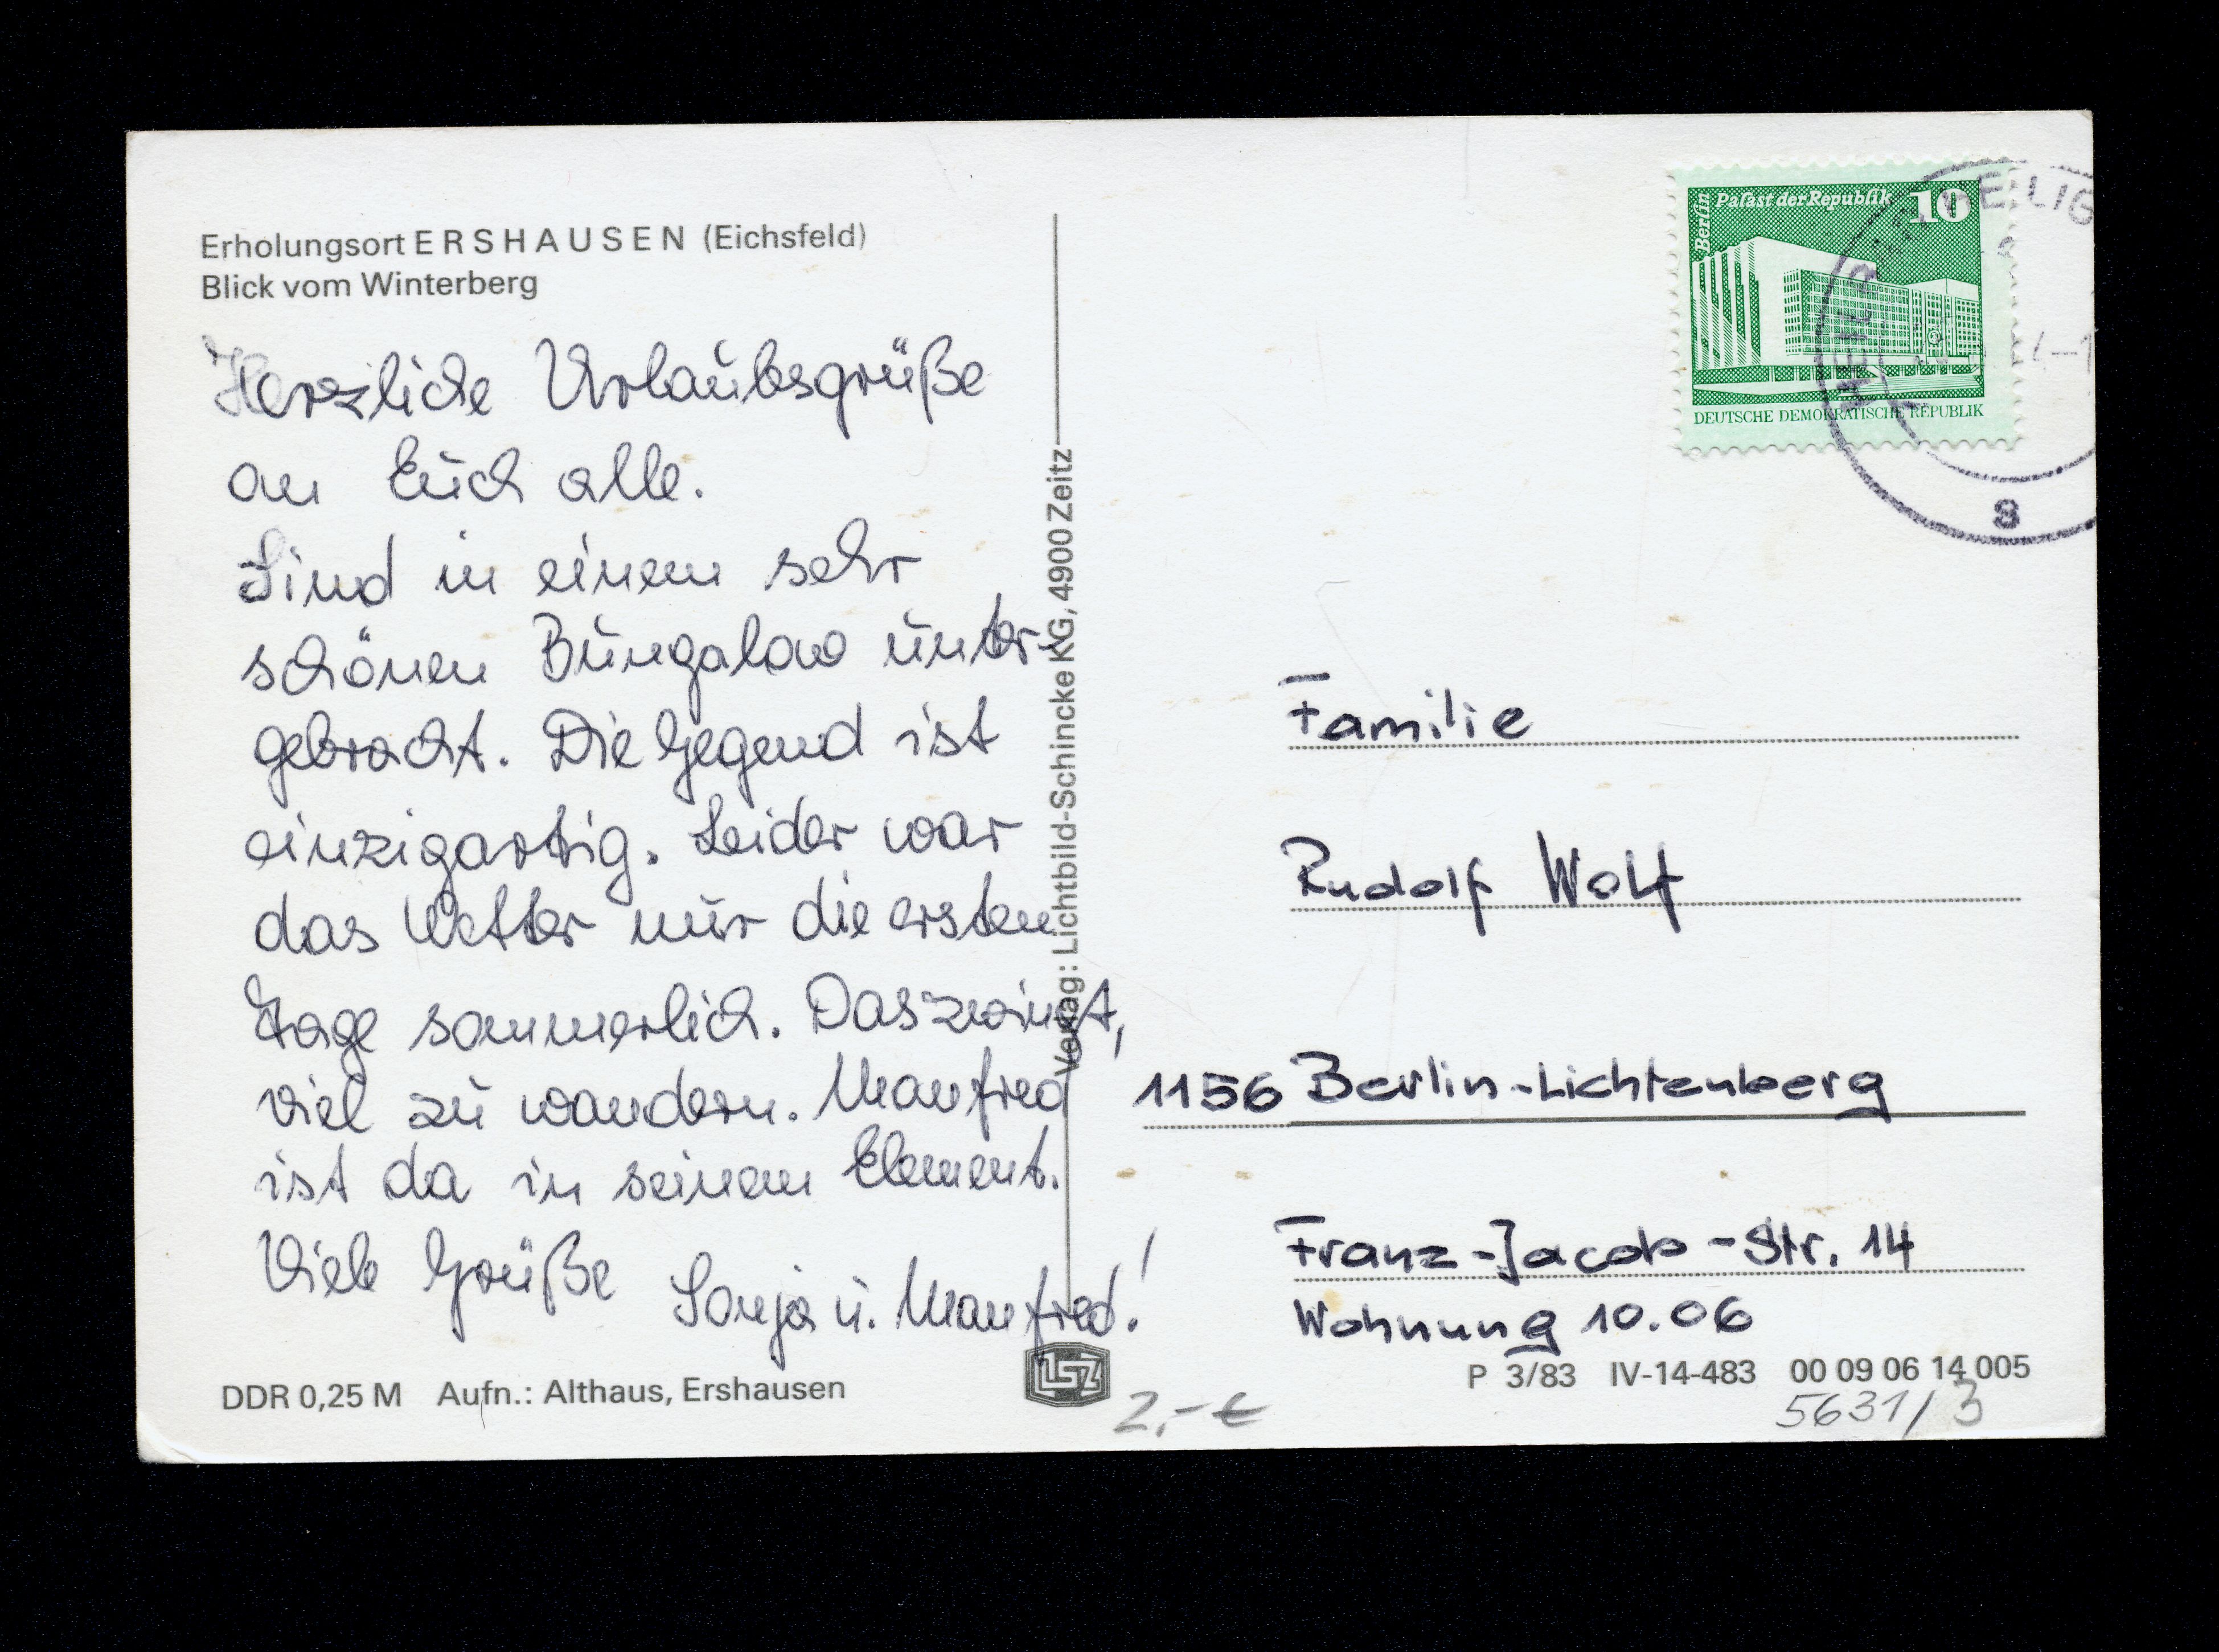 Erholungsort ERSHAUSEN (Eichsfeld)
Blick vom Winterberg
Herzliche Urlaubsgrüße
an Euch alle.
Sind in einem sehr
schönen Bungalow unter-
gebracht. Die Gegend ist
einzigartig. Leider war
das Wetter nur die ersten
Tage sommerlich. Das zwingt,
viel zu wandern. Manfred
ist da in seinem Element.
Viele Grüße Sonja u. Manfred!
DDR 0,25 M Aufn.: Althaus, Ershausen
Verlag: Lichtbild-Schincke KG, 4900 Zeitz
LSZ
2,- €
Berlin
Palast der Republik 10
DEUTSCHE DEMOKRATISCHE REPUBLIK
HEILIG
s
Familie
Rudolf Wolf
1156 Berlin-Lichtenberg
Franz-Jacob-Str. 14
Wohnung 10.06
P 3/83 IV-14-483 00 09 06 14 005
5631/3